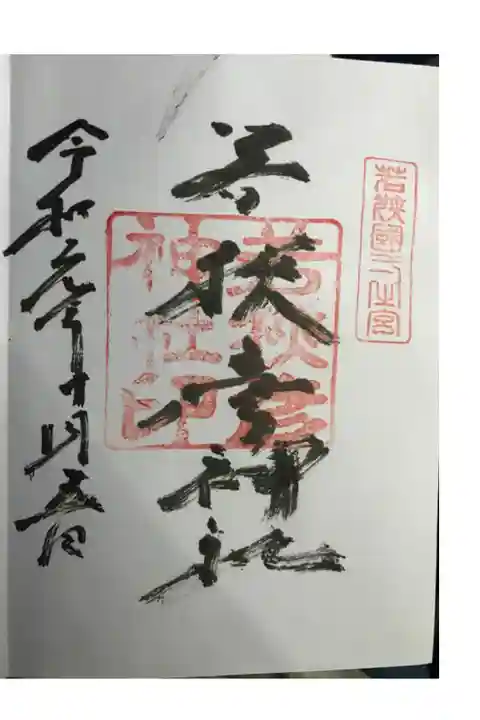 若狭國二之宮
若狭彦神社印
若狭彦神社
令和六年十月五日